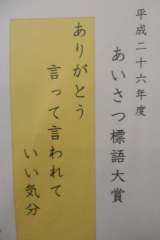 平成二十六年度
あいさつ標語大賞
ありがとう
言って言われて
いい気分